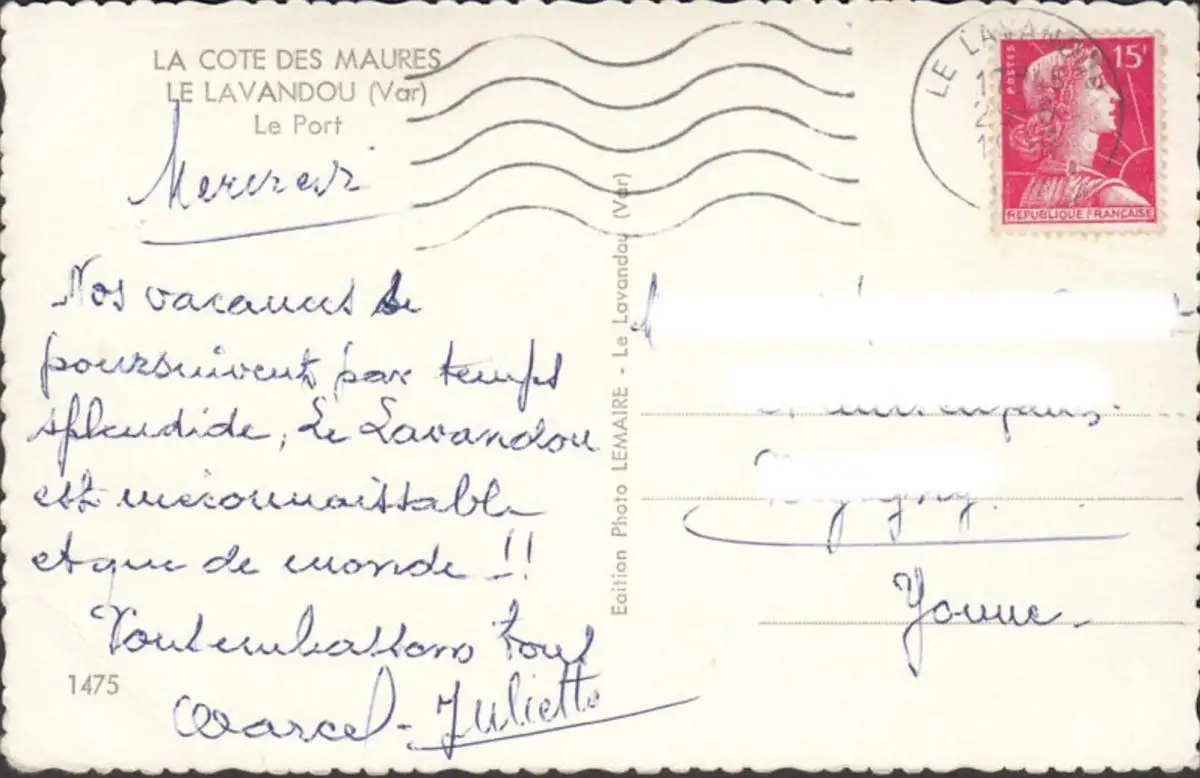 LA COTE DES MAURES
LE LAVANDOU (Var)
Le Port
Mercredi
Nos vacances se
poursuivent par temps
splendide, Le Lavandou
est méconnaissable
et que de monde !!
Vous embrassons tous
Marcel - Juliette
1475
Edition Photo LEMAIRE - Le Lavandou (Var)
LE LAVANDOU
POSTES
15F
REPUBLIQUE FRANÇAISE
Yonne.